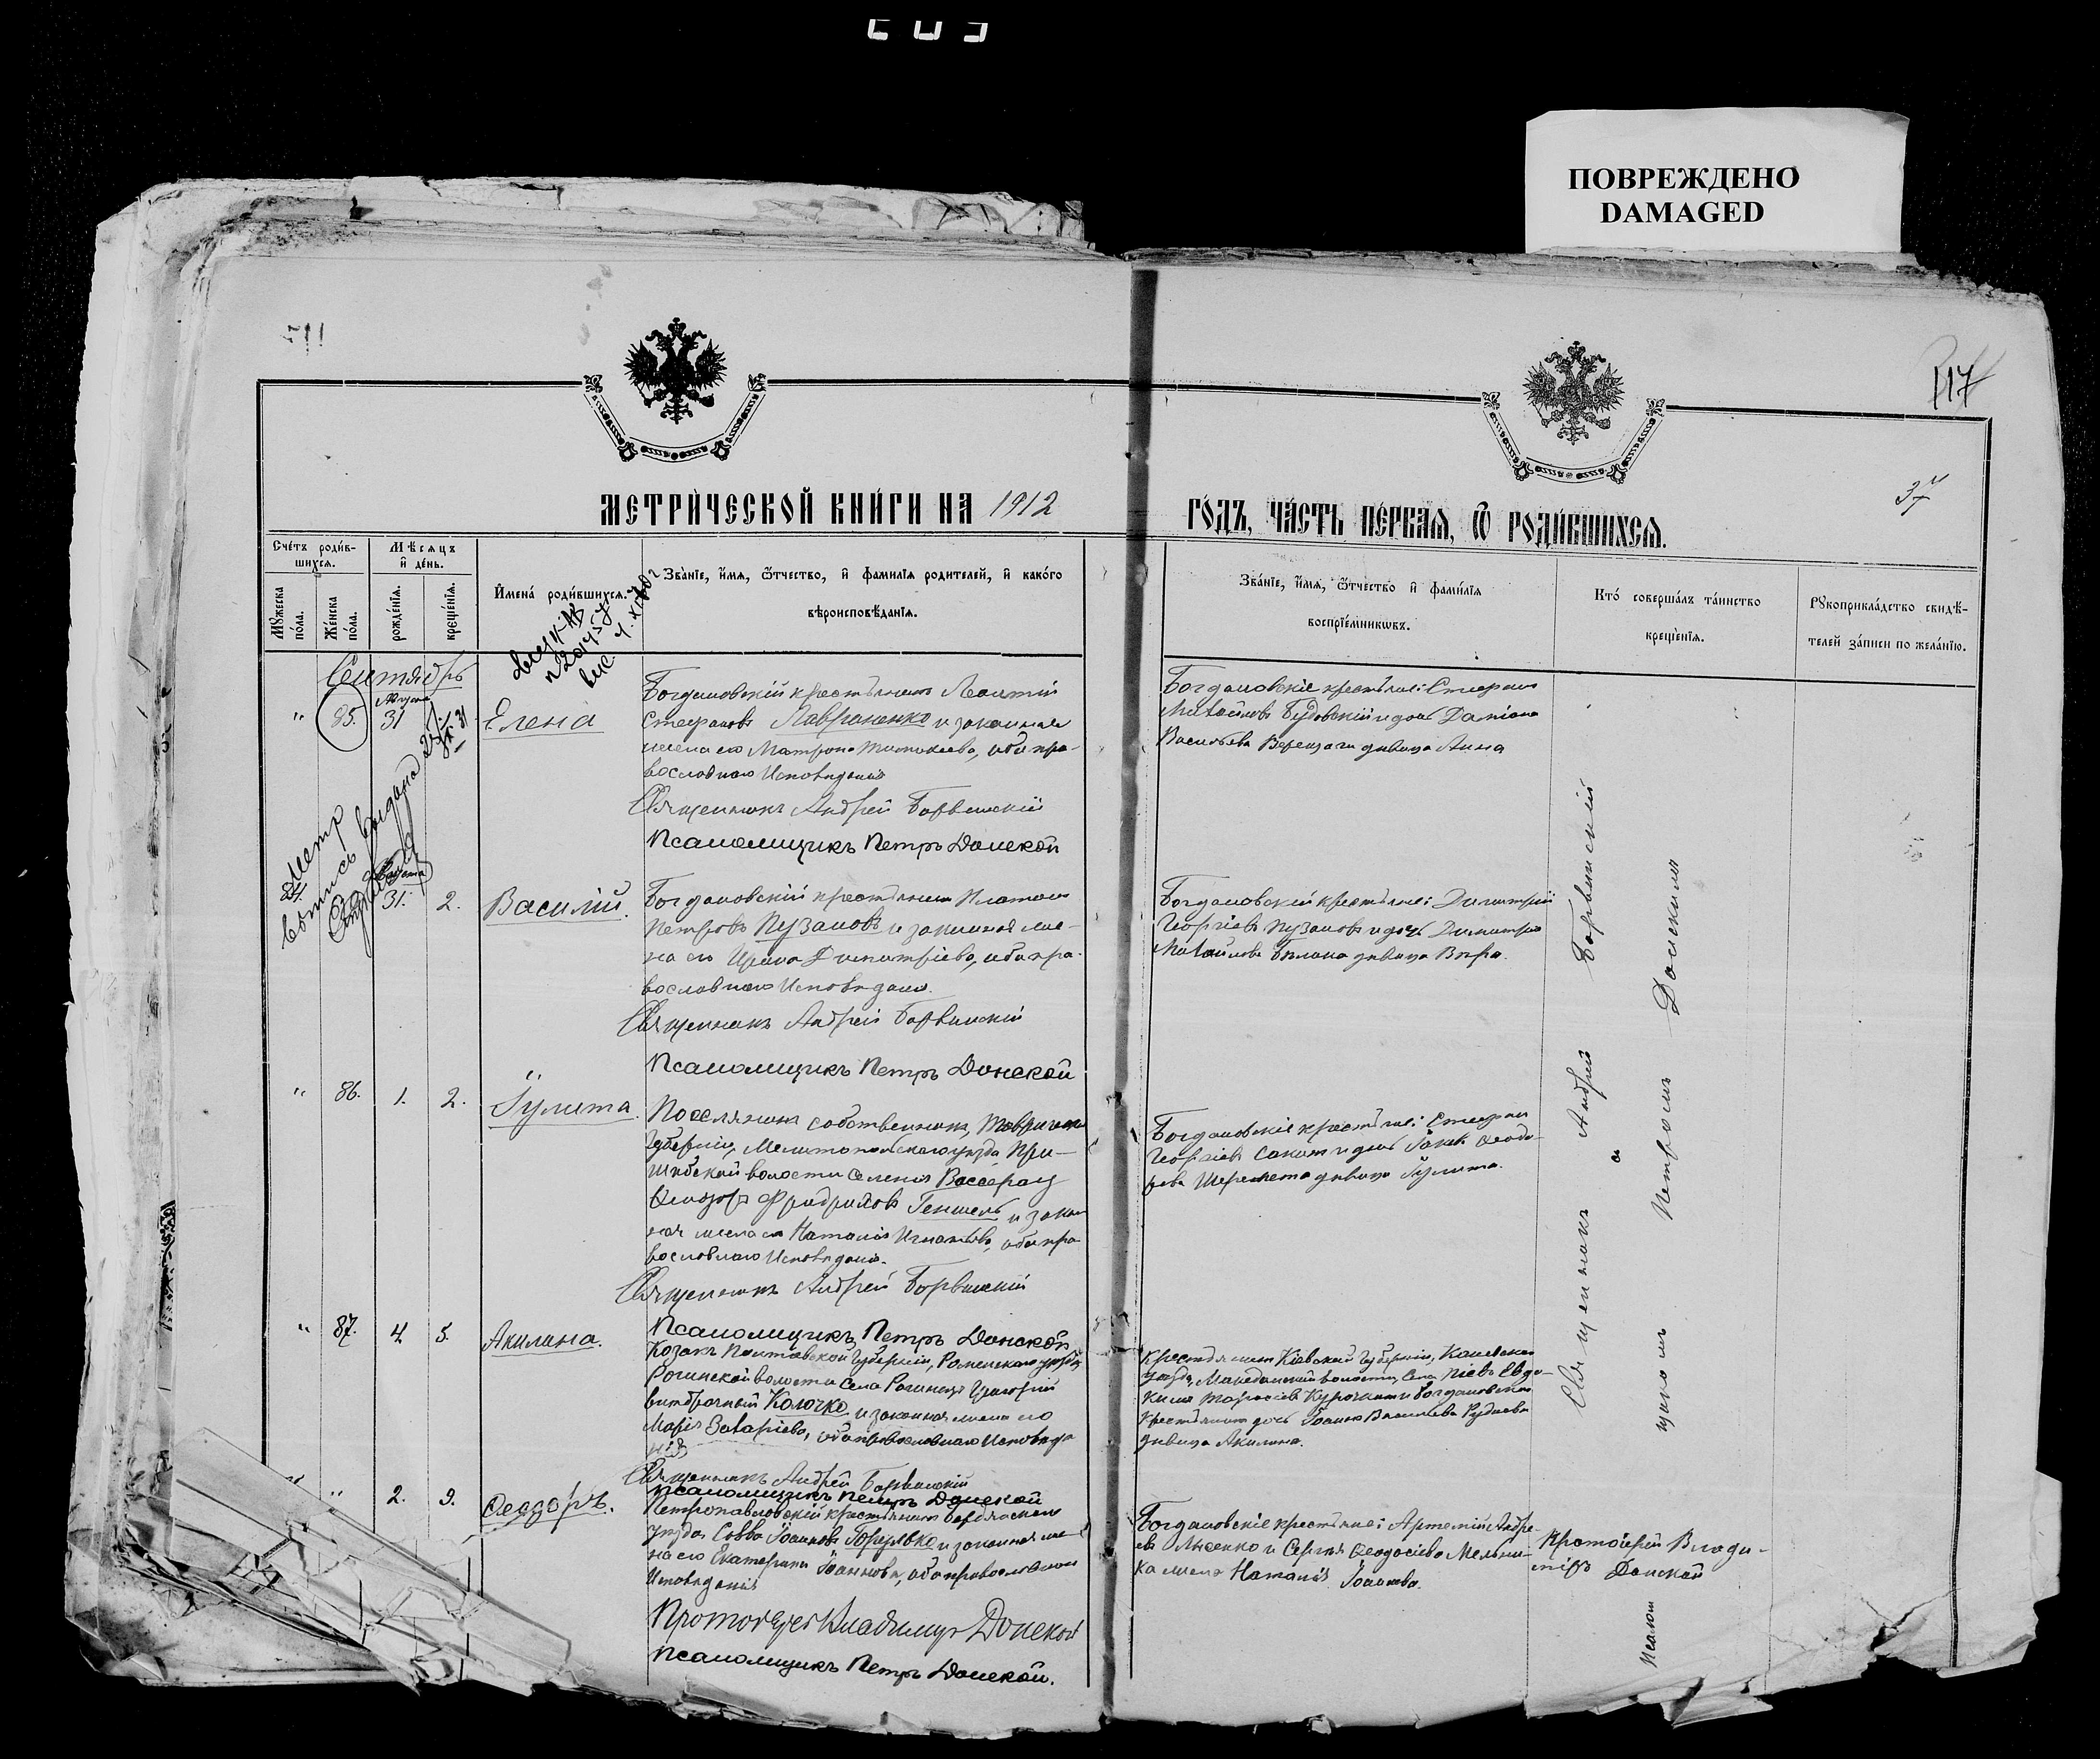 ПОВРЕЖДЕНО
DAMAGED
117
37
МЕТРИ́ЧЕСКОЙ КНИ́ГИ НА 1912
ГО́ДЪ, ЧА́СТЬ ПЕ́РВАѦ, Ѿ РОДИ́ВШИХСѦ.
Счéтъ роди́в-
шихсѧ.
Мꙋ́жеска
по́ла.
Же́нска
по́ла.
Мѣ́сѧцъ
и҆ де́нь.
рожде́нїѧ.
креще́нїѧ.
И҆мена̀ роди́вшихсѧ.
Зва́нїе, и҆́мѧ, ѻ҆́тчество, и҆ фами́лїѧ роди́телей, и҆ како́го
вѣроисповѣ́данїѧ.
Зва́нїе, и҆́мѧ, ѻ҆́тчество и҆ фами́лїѧ
воспрїе́мникѡвъ.
Кто̀ соверша́лъ та́инство
креще́нїѧ.
Рꙋкоприкла́дство свидѣ́-
телей за́писи по жела́нїю.
Сентябрь
" 85. Августа 31 31 Елена
Богдановскій крестьянинъ Леонтій
Стефановъ Лавриненко и законная
жена его Матрона Тимофеева, оба пра-
вославнаго Исповѣданія
Священникъ Андрей Борвинскій
Псаломщикъ Петръ Донской
Богдановскіе крестьяне: Стефанъ
Михайловъ Будовскій и дочь Даміана
Васильева Верещаги дѣвица Анна
84. Августа 31. 2. Василій.
Богдановскій крестьянинъ Платонъ
Петровъ Пузановъ и законная же-
на его Ирина Димитріева, оба пра-
вославнаго Исповѣданія.
Священникъ Андрей Борвинскій
Псаломщикъ Петръ Донской
Богдановскій крестьяне: Димитрій
Георгіевъ Пузановъ и дочь Димитрія
Михайлова Бѣлана дѣвица Вѣра.
" 86. 1. 2. Іулита.
Поселянинъ собственникъ, Таврической
Губерніи, Мелитопольскаго уѣзда При-
шибской волости Селенія Вассерау
Ѳеодоръ Фридриховъ Геншель и закон
ная жена его Наталія Игнатьева, оба пра
вославнаго Исповѣданія.
Священникъ Андрей Борвинскій
Псаломщикъ Петръ Донской
Богдановскіе крестьяне: Стефан
Георгіевъ Сакит и дочь Іакова Ѳеодо-
рова Шеремета дѣвица Іулита.
" 87. 4 5. Акилина.
Козакъ Полтавской Губерніи, Роменскаго уѣзда
Рогинской волости Села Рогинцы Григорій
Колочко и законная жена его
Марія Захаріева, оба православнаго Исповѣда
нія
Священникъ Андрей Борвинскій
Псаломщикъ Петръ Донской
Крестьянинъ Кіевской Губерніи, Каневскаго
уѣзда, волости, Села Евдо-
кимъ Тарасіевъ и Богдановскаго
крестьянина дочь Іоанна Васильева Руднева
дѣвица Акилина.
" 2. 9. Ѳеодоръ.
Петропавловскій крестьянинъ Бердянскаго
уѣзда Савва Іоанновъ и законная же-
на его Екатерина Іоаннова, оба православнаго
Исповѣданія
Протоіерей Владимиръ Донской
Псаломщикъ Петръ Донской.
Богдановскіе крестьяне: Артемій Андре-
евъ Лысенко и Сергѣя Ѳеодосіева Мельни-
ка жена Наталія Іоаннова.
Протоіерей Влади-
миръ Донской
Священникъ Андрей Борвинскій
съ
щикомъ Петромъ Донскимъ
Псалом